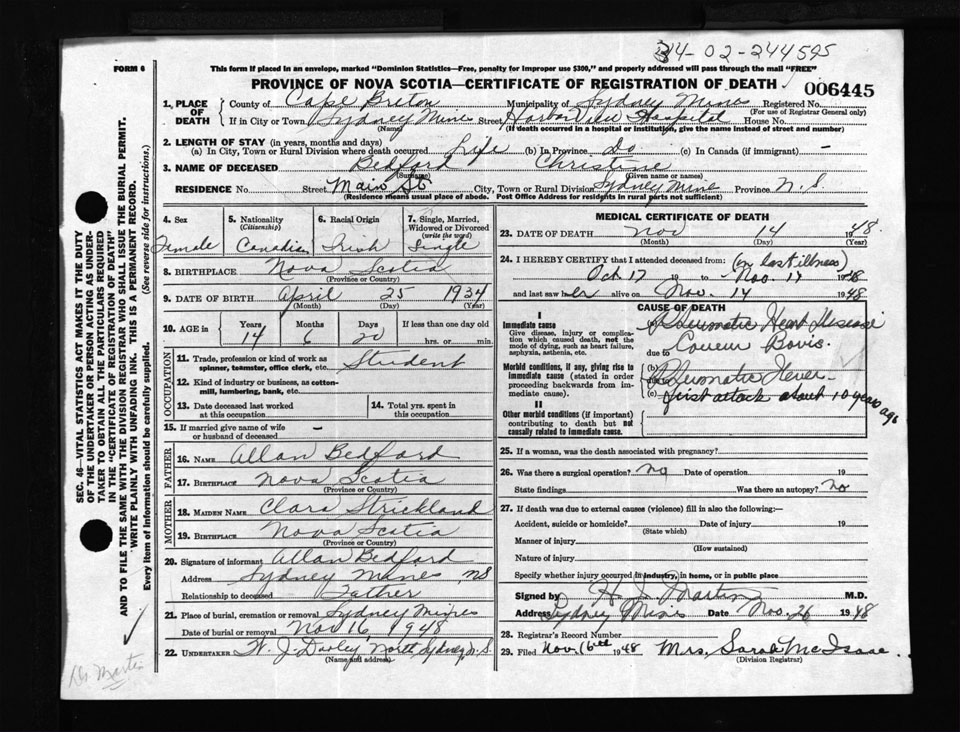 34-02-244595
FORM 6
This form if placed in an envelope, marked "Dominion Statistics—Free, penalty for improper use $300," and properly addressed will pass through the mail "FREE"
PROVINCE OF NOVA SCOTIA—CERTIFICATE OF REGISTRATION OF DEATH
006445
1. PLACE OF DEATH
County of Cape Breton Municipality of Sydney Mines Registered No.
(For use of Registrar General only)
If in City or Town Sydney Mines Street Harbor View Hospital House No.
(Name) (If death occurred in a hospital or institution, give the name instead of street and number)
2. LENGTH OF STAY (in years, months and days)
(a) In City, Town or Rural Division where death occurred Life (b) In Province Do (c) In Canada (if immigrant) —
3. NAME OF DECEASED Bedford Christine
(Surname) (Given name or names)
RESIDENCE No. Street Main St. City, Town or Rural Division Sydney Mines Province N.S.
(Residence means usual place of abode. Post Office Address for residents in rural parts not sufficient)
4. Sex Female
5. Nationality (Citizenship) Canadian
6. Racial Origin Irish
7. Single, Married, Widowed or Divorced (write the word) Single
8. BIRTHPLACE Nova Scotia
(Province or Country)
9. DATE OF BIRTH April 25 1934
(Month) (Day) (Year)
10. AGE in Years Months Days If less than one day old
14 6 20 hrs. or min.
OCCUPATION
11. Trade, profession or kind of work as spinner, teamster, office clerk, etc. Student
12. Kind of industry or business, as cotton-mill, lumbering, bank, etc.
13. Date deceased last worked at this occupation
14. Total yrs. spent in this occupation
15. If married give name of wife or husband of deceased —
FATHER
16. NAME Allan Bedford
17. BIRTHPLACE Nova Scotia
(Province or Country)
MOTHER
18. MAIDEN NAME Clara Strickland
19. BIRTHPLACE Nova Scotia
(Province or Country)
20. Signature of informant Allan Bedford
Address Sydney Mines, NS
Relationship to deceased Father
21. Place of burial, cremation or removal Sydney Mines
Date of burial or removal Nov 16, 1948
22. UNDERTAKER W. J. Dooley, North Sydney N.S.
(Name and address)
MEDICAL CERTIFICATE OF DEATH
23. DATE OF DEATH Nov 14 1948
(Month) (Day) (Year)
24. I HEREBY CERTIFY that I attended deceased from: (in last illness)
Oct 17 19 to Nov. 14 1948
and last saw her alive on Nov. 14 1948
CAUSE OF DEATH
I
Immediate cause
Give disease, injury or complication which caused death, not the mode of dying, such as heart failure, asphyxia, asthenia, etc.
(a) Rheumatic Heart Disease
due to Bovis.
Morbid conditions, if any, giving rise to immediate cause (stated in order proceeding backwards from immediate cause).
(b) Rheumatic Fever
(c) first attack about 10 years ago
II
Other morbid conditions (if important) contributing to death but not causally related to immediate cause.
25. If a woman, was the death associated with pregnancy?
26. Was there a surgical operation? No Date of operation 19
State findings Was there an autopsy? No
27. If death was due to external causes (violence) fill in also the following:—
Accident, suicide or homicide? Date of injury 19
(State which)
Manner of injury
(How sustained)
Nature of injury
Specify whether injury occurred in industry, in home, or in public place
Signed by H. J. Martin M.D.
Address Sydney Mines Date Nov. 26 1948
28. Registrar's Record Number
29. Filed Nov. 16th 1948 Mrs. Sarah McIsaac.
(Division Registrar)
SEC. 46—VITAL STATISTICS ACT MAKES IT THE DUTY
OF THE UNDERTAKER OR PERSON ACTING AS UNDER-
TAKER TO OBTAIN ALL THE PARTICULARS REQUIRED
IN THE "CERTIFICATE OF REGISTRATION OF DEATH"
AND TO FILE THE SAME WITH THE DIVISION REGISTRAR WHO SHALL ISSUE THE BURIAL PERMIT.
WRITE PLAINLY WITH UNFADING INK. THIS IS A PERMANENT RECORD.
Every item of Information should be carefully supplied. (See reverse side for instructions.)
Dr. Martin